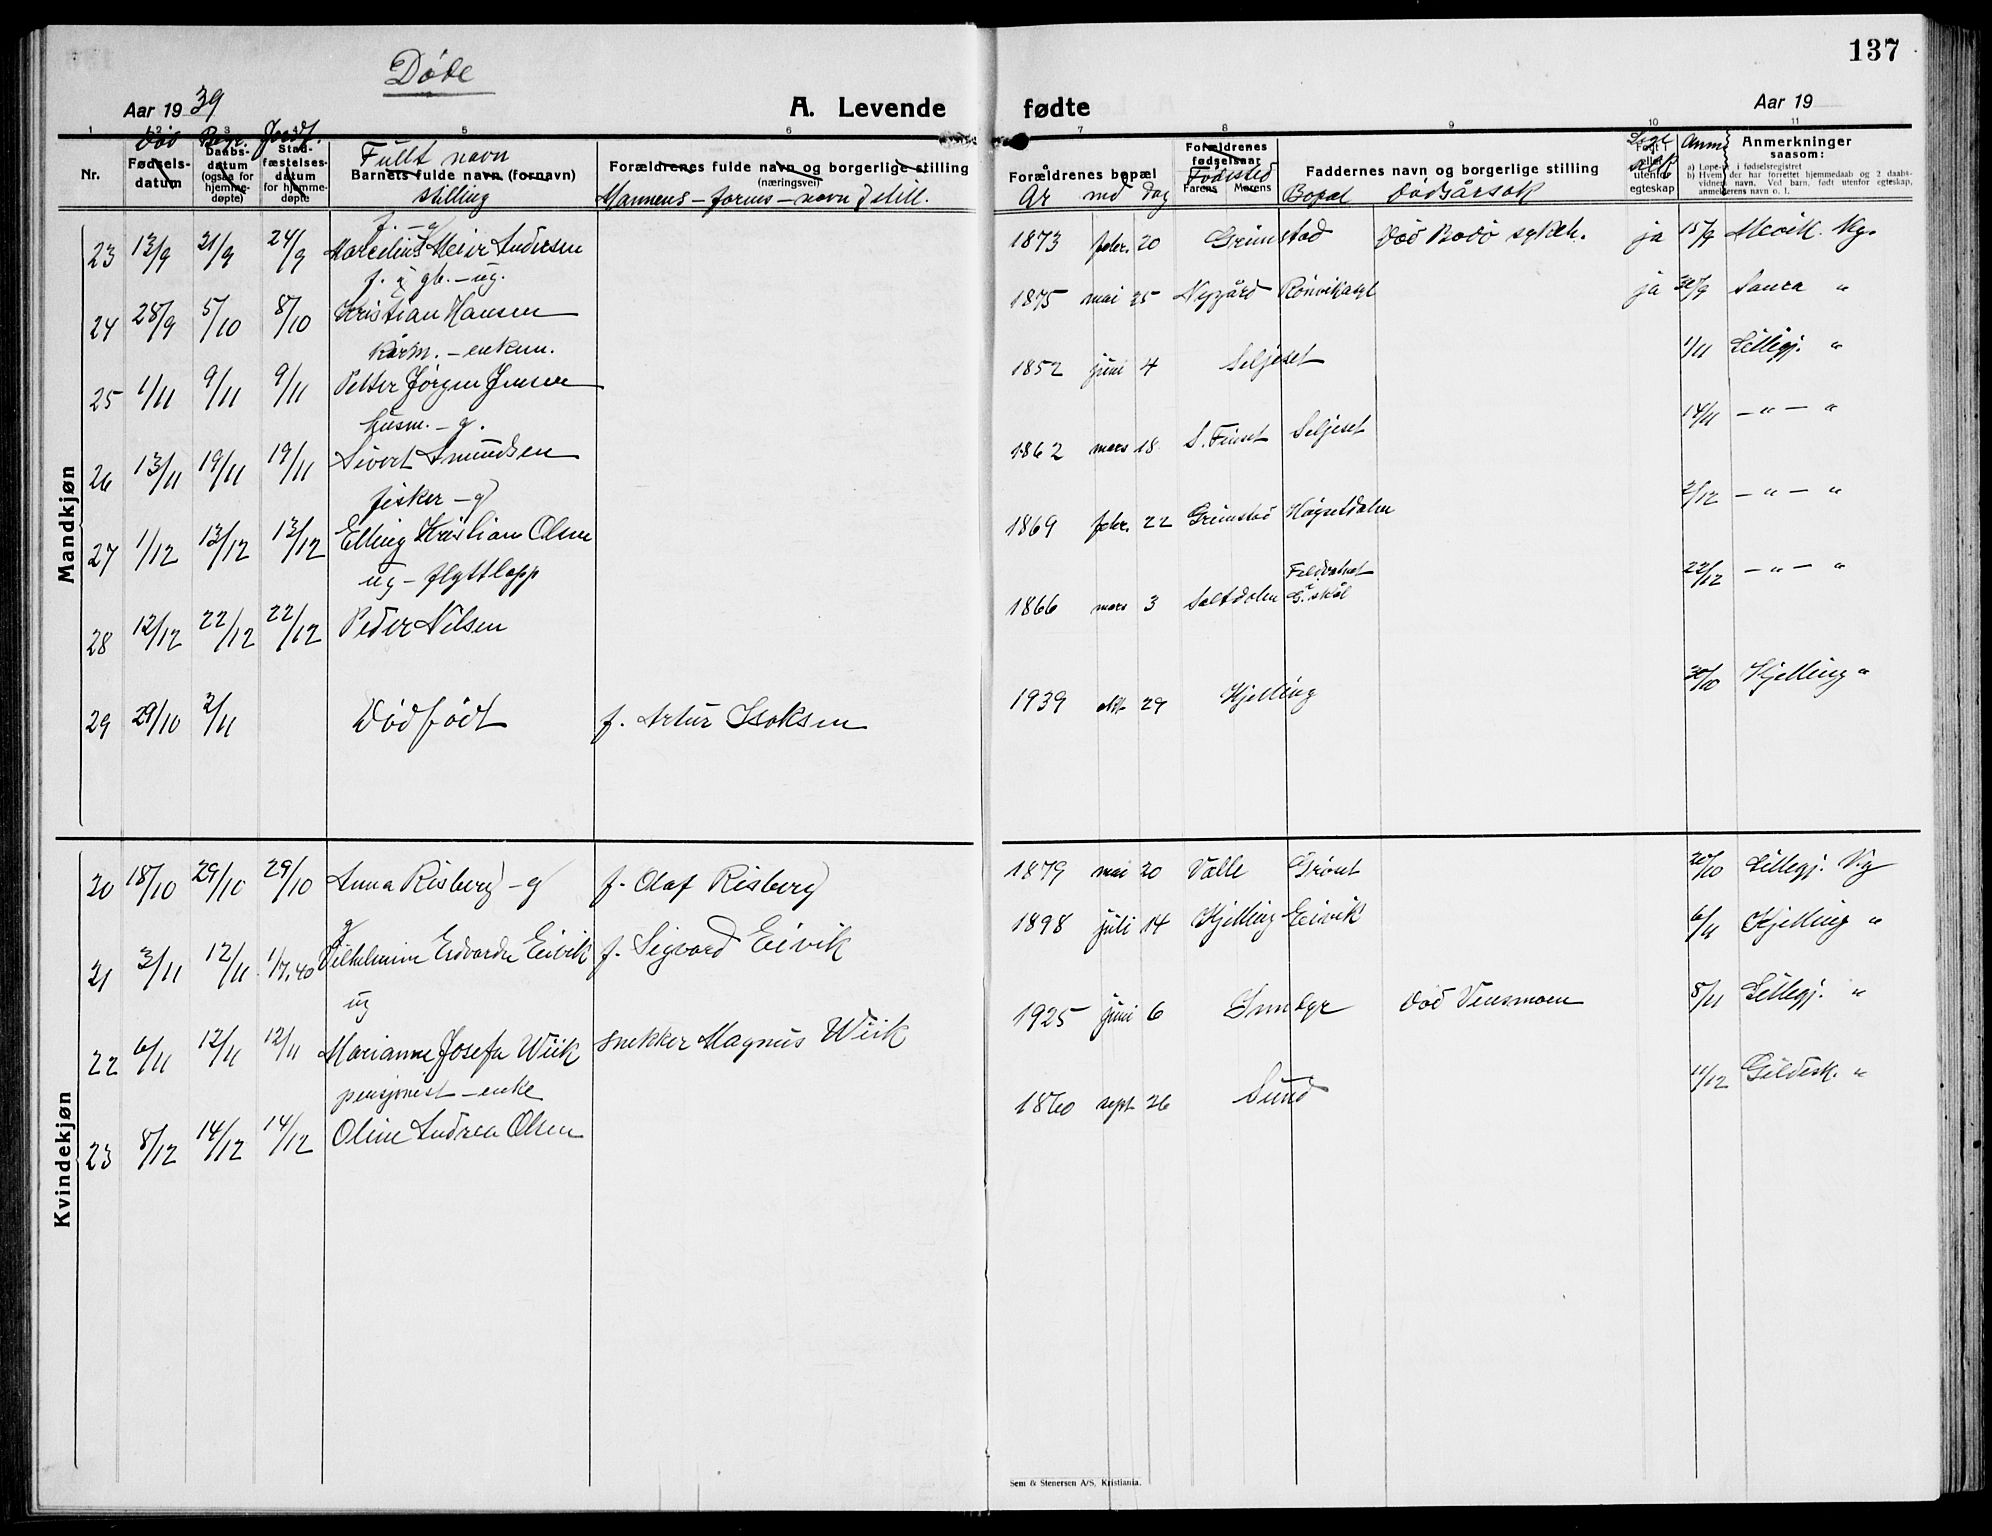 137
Døde
Aar 1939
A. Levende fødte
Aar 19
1 2 3 4 5 6 7 8 9 10 11
Nr.
Død
Fødsels-
datum
Begr.
Daabs-
datum
(ogsaa for
hjemme-
døpte)
Jordf.
Stad-
fæstelses-
datum
for hjemme-
døpte
Fullt navn
Barnets fulde navn (fornavn)
stilling
Forældrenes fulde navn og borgerlige stilling
(næringsvei)
Mannens – farens – navn, still.
Forældrenes bopæl
År md dag
Forældrenes
fødselsaar
Fødested
Farens Morens
Faddernes navn og borgerlige stilling
Bopel Dødsårsak
Født
eller
utenfor
egteskap
Anm.
Anmerkninger
saasom:
a) Lope-nr. i fødselsregistret
b) Hvem der har forrettet hjemmedaab og 2 daabs-
vidners navn. Ved barn, født utenfor egteskap,
anmelderens navn o. l.
Mandkjøn
f. – g
23 13/9 21/9 24/9 Marcelius Meier Andersen 1873 febr. 20 Grimstad Død Bodø sykeh. ja 15/9 Mevik. Ng.
f. i gb. – ug.
24 28/9 5/10 8/10 Kristian Hansen 1875 mai 25 Nygård Rønvik asyl ja 30/9 Saura "
kårm. – enkem.
25 1/11 9/11 9/11 Petter Jørgen Jensen 1852 juni 4 Seljeset 1/11 Lillegj. "
husm. – g.
26 13/11 19/11 19/11 Sivert Amundsen 1862 mars 18 S. Finset Seljeset 14/11 – " – "
fisker – g
27 1/12 13/12 13/12 Elling Kristian Olsen 1869 febr. 22 Grimstad Høgsetdalen 2/12 – " – "
ug – flyttlapp
28 12/12 22/12 22/12 Peder Nilsen 1866 mars 3 Saltdalen Feldvatnet 22/12 – " – "
29 29/10 2/11 Dødfødt f. Artur Isaksen 1939 okt. 29 Kjelling 30/10 Kjelling "
Kvindekjøn
20 18/10 29/10 29/10 Anna Risberg – g f. Olaf Risberg 1879 mai 20 Valle Grønt 20/10 Lillegj. Ng
g
21 3/11 12/11 1/7.40 Vilhelmine Edvarda Eivik f. Sigvard Eivik 1898 juli 14 Kjelling Eivik 6/11 Kjelling "
ug
22 6/11 12/11 12/11 Marianne Josefa Wiik snekker Magnus Wiik 1925 juni 6 Inndyr Død Vensmoen 8/11 Lillegj. "
pensjonist – enke
23 8/12 14/12 14/12 Oline Andrea Olsen 1860 sept 26 Sund 11/12 Gildesk. "
Sem & Stenersen A/S, Kristiania.